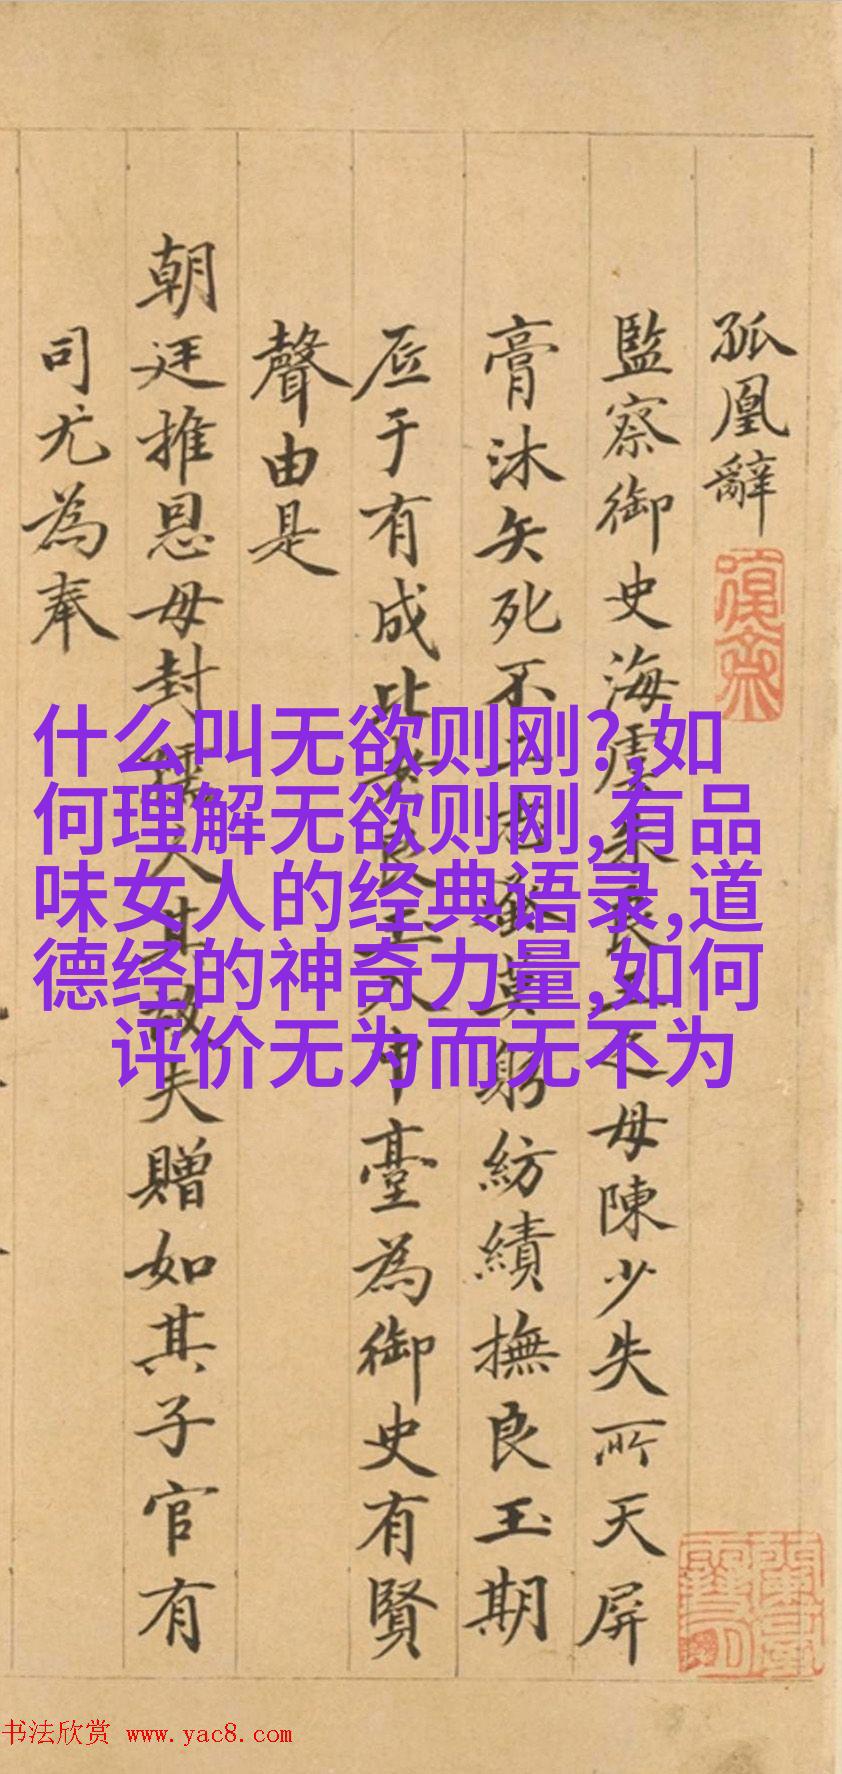 孤凰辭
監察御史海虞朱良玉之母陳少失所天屏
膏沐矢死不二志蚤莫躬紡績撫良玉期
底于有成比者良玉入中臺為御史有賢
聲由是
朝廷推恩母封孺人其故夫贈如其子官有
司尤為奉
什么叫无欲则刚?,如
何理解无欲则刚,有品
味女人的经典语录,道
德经的神奇力量,如何
评价无为而无不为
书法欣赏 www.yac8.com